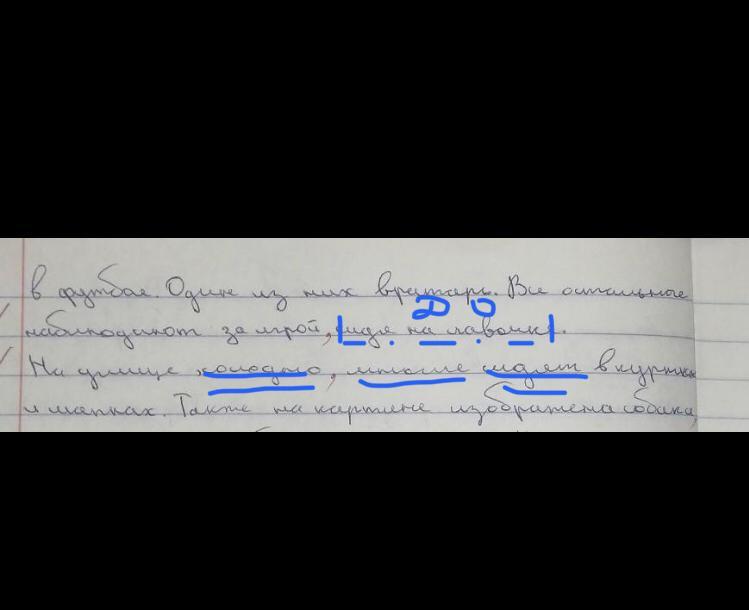 в футбол. Один из них вратарь. Все остальные
Д О
наблюдают за игрой, сидя на лавочке.
На улице холодно, многие сидят в куртках
и шапках. Также на картине изображена собака,